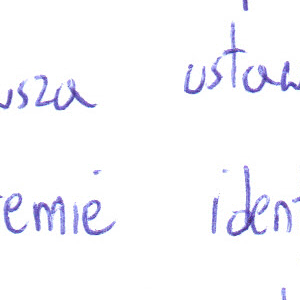 usza ustaw
emie ident